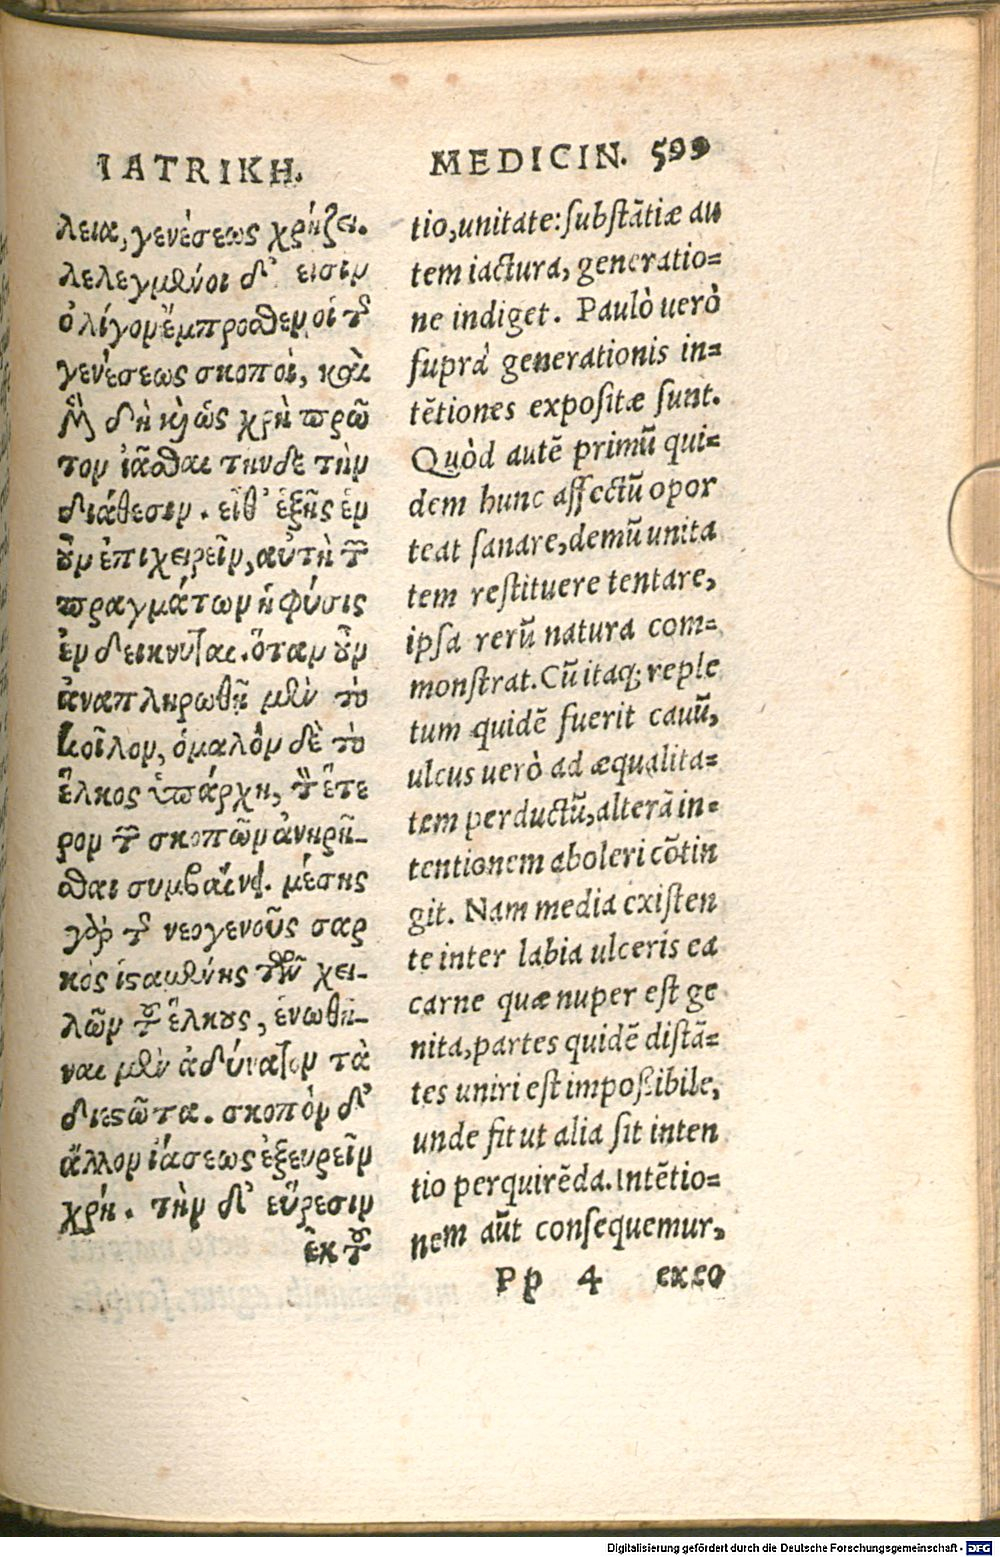 ΙΑΤΡΙΚΗ.
λεια, γενέσεως χρήζει.
λελεγμένοι δ' εισιν
ὀλίγον ἔμπροσθεν οἱ τῆς
γενέσεως σκοποί, καὶ
δὴ κὶ ὡς χρὴ πρῶ
τον ἰᾶσθαι τηνδε τὴν
διάθεσιν. εἶθ' ἑξῆς ἑν
οῦν ἐπιχειρεῖν, αὐτὴ τῶν
πραγμάτων ἡ φύσις
ἐνδεικνυται. ὅταν οῦν
ἀναπληρωθῆ μὲν τὸ
κοῖλον, ὁμαλὸν δὲ τὸ
ἕλκος ὑπάρχη, τὸν ἕτε
ρον τῶν σκοπῶν ἀνηρῆ-
σθαι συμβαίνει. μέσης
γὰρ τῆς νεογενοῦς σαρ
κὸς ἱσαμένης τῶν χει-
λῶν τοῦ ἕλκους, ἑνωθῆ-
ναι μὲν ἀδύνατον τὰ
διεστῶτα. σκοπὸν δ'
ἄλλον ἰάσεως ἐξευρεῖν
χρή. τὴν δ' εὕρεσιν
ἐκ τοῦ
MEDICIN. 599
tio, unitate: substātiæ au
tem iactura, generatio=
ne indiget. Paulò uerò
suprà generationis in=
tētiones expositæ sunt.
Quòd autē primū qui=
dem hunc affectū opor
teat sanare, demū unita
tem restituere tentare,
ipsa rerū natura com=
monstrat. Cū itaq; reple
tum quidē fuerit cauū,
ulcus uerò ad æqualita=
tem perductū, alterā in=
tentionem aboleri cōtin
git. Nam media existen
te inter labia ulceris ea
carne quæ nuper est ge
nita, partes quidē distā=
tes uniri est impossibile,
unde fit ut alia sit inten
tio perquirēda. Intētio=
nem aūt consequemur,
Pp 4 ex eo
Digitalisierung gefördert durch die Deutsche Forschungsgemeinschaft - DFG